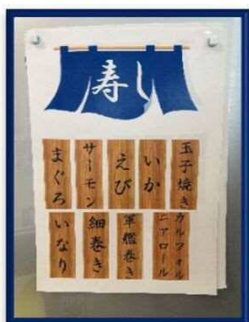 寿し
玉子焼き
いか
えび
サーモン
まぐろ
カルフォルニアロール
軍艦巻き
細巻き
いなり